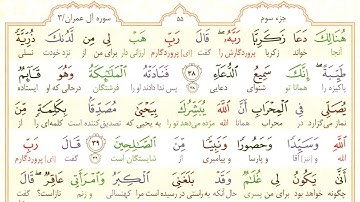 جزء سوم ۵۵ سوره آل عمران/۳
هُنَالِكَ دَعَا زَكَرِيَّا رَبَّهُ قَالَ رَبِّ هَبْ لِي مِن لَّدُنكَ ذُرِّيَّةً
آنجا خواند زکریا پروردگارش را گفت (ای) پروردگارم ارزانی دار برای من از نزدخودت نسلی
طَيِّبَةً إِنَّكَ سَمِيعُ الدُّعَاءِ ۳۸ فَنَادَتْهُ الْمَلَائِكَةُ وَهُوَ قَائِمٌ
پاکیزه را همانا تو شنوای دعایی ۳۸ پس ندا دادند او را فرشتگان درحالی که او ایستاده
يُصَلِّي فِي الْمِحْرَابِ أَنَّ اللَّهَ يُبَشِّرُكَ بِيَحْيَىٰ مُصَدِّقًا بِكَلِمَةٍ مِّنَ
نماز می‌گزارد در محراب همانا الله مژده می‌دهد تو را به یحیی که تصدیق کننده است کلمه‌ای را از
اللَّهِ وَسَيِّدًا وَحَصُورًا وَنَبِيًّا مِّنَ الصَّالِحِينَ ۳۹ قَالَ رَبِّ
الله و (نیز) آقا و پارسا و پیامبری از شایستگان است ۳۹ گفت (ای) پروردگارم
أَنَّىٰ يَكُونُ لِي غُلَامٌ وَقَدْ بَلَغَنِيَ الْكِبَرُ وَامْرَأَتِي عَاقِرٌ قَالَ
چگونه خواهد بود برای من پسری حال آنکه به راستی در رسیده است مرا کهنسالی و زنم نازاست؟ گفت